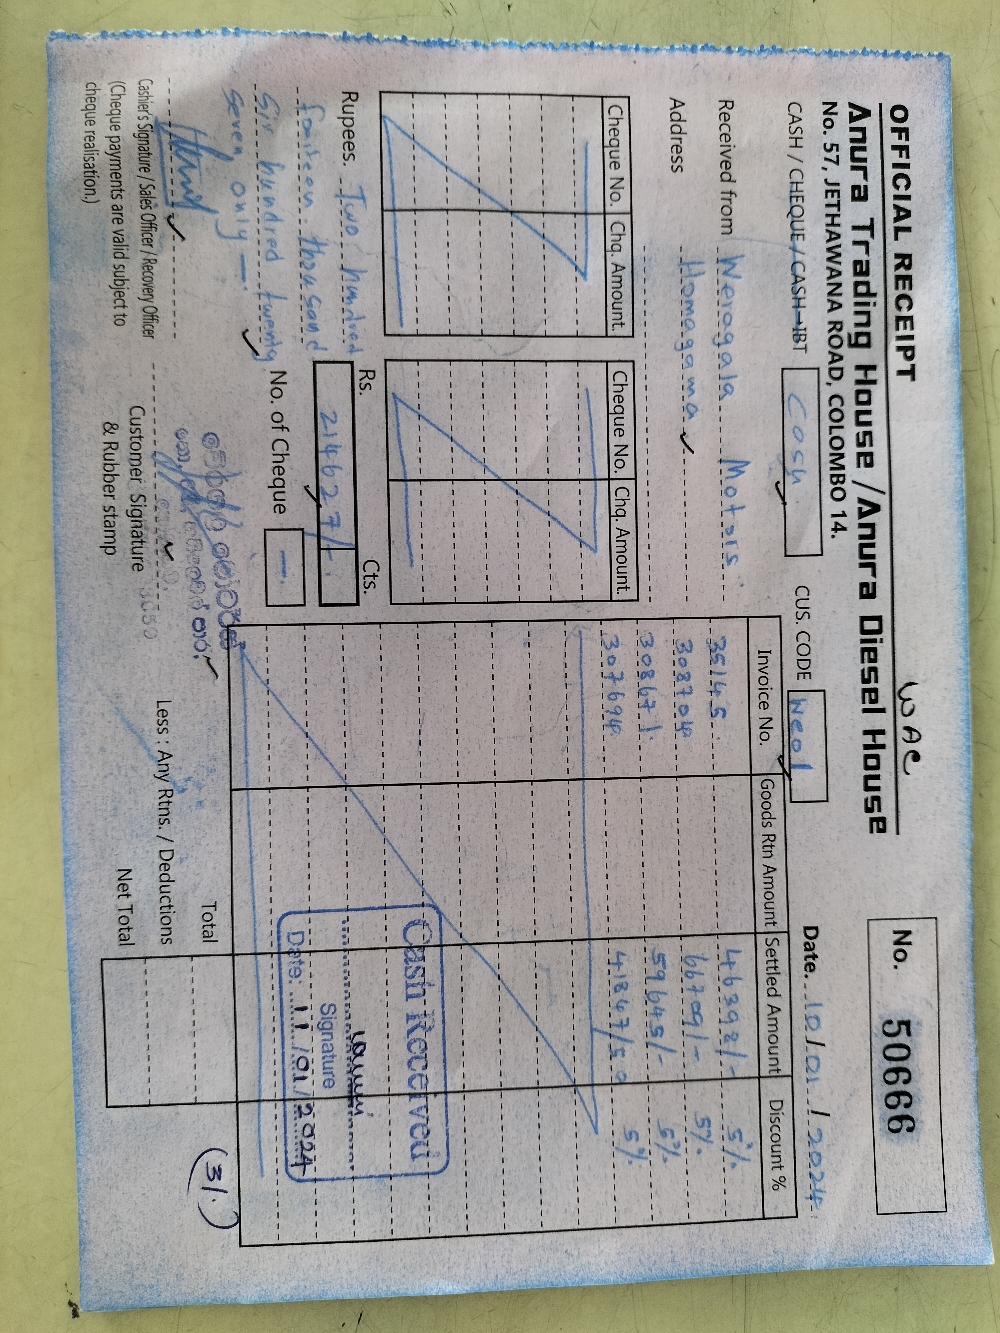 OFFICIAL RECEIPT
WAC
No. 50666
Anura Trading House /Anura Diesel House
No. 57, JETHAWANA ROAD, COLOMBO 14.
CASH / CHEQUE / CASH-IBT Cash
CUS. CODE We01
Date. 10/01/2024
Received from Weragala Motors
Address Homagama
Cheque No. Chq. Amount. Cheque No. Chq. Amount.
Invoice No. Goods Rtn Amount Settled Amount Discount %
35145 46392/- 5%
308704 66709/- 5%
308671 59645/- 5%
307694 41847/50 5%
Rupees. Two hundred
fourteen thousand
Six hundred twenty
seven only
Rs. Cts.
214627/-
No. of Cheque –
Cash Received
Signature
Date: 11/01/2024
Cashier's Signature / Sales Officer / Recovery Officer
(Cheque payments are valid subject to
cheque realisation.)
Customer Signature
& Rubber stamp
Total
Less : Any Rtns. / Deductions
Net Total
(31.)